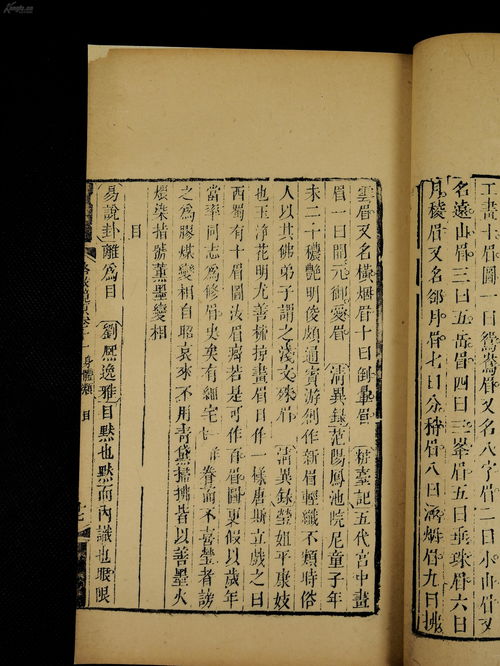 工畫十眉圖一曰鴛鴦眉又名八字眉二曰小山眉又
名遠山眉三曰五岳眉四曰三峯眉五曰垂珠眉六曰
月棱眉又名郤月眉七曰分梢眉八曰涵烟眉九曰拂
雲眉又名橫烟眉十曰倒暈眉 粧臺記五代宮中畫
眉一曰開元御愛眉 清異錄范陽鳳池院尼童子年
未二十穠艷明俊頗通賓游創作新眉輕纖不類時俗
人以其佛弟子謂之淺文殊眉 清異錄瑩姐平康妓
也玉淨花明尤善梳掠畫眉日作一樣唐斯立戲之曰
西蜀有十眉圖汝眉癖若是可作百眉圖更假以歲年
當率同志爲修眉史矣有細宅眷而不喜瑩者謗
之爲膠煤變相自昭哀來不用青黛掃拂皆以善墨火
煨染指號薰墨變相
目
易說卦離爲目 劉熈逸雅目黙也黙而內識也眼限
身體類 目